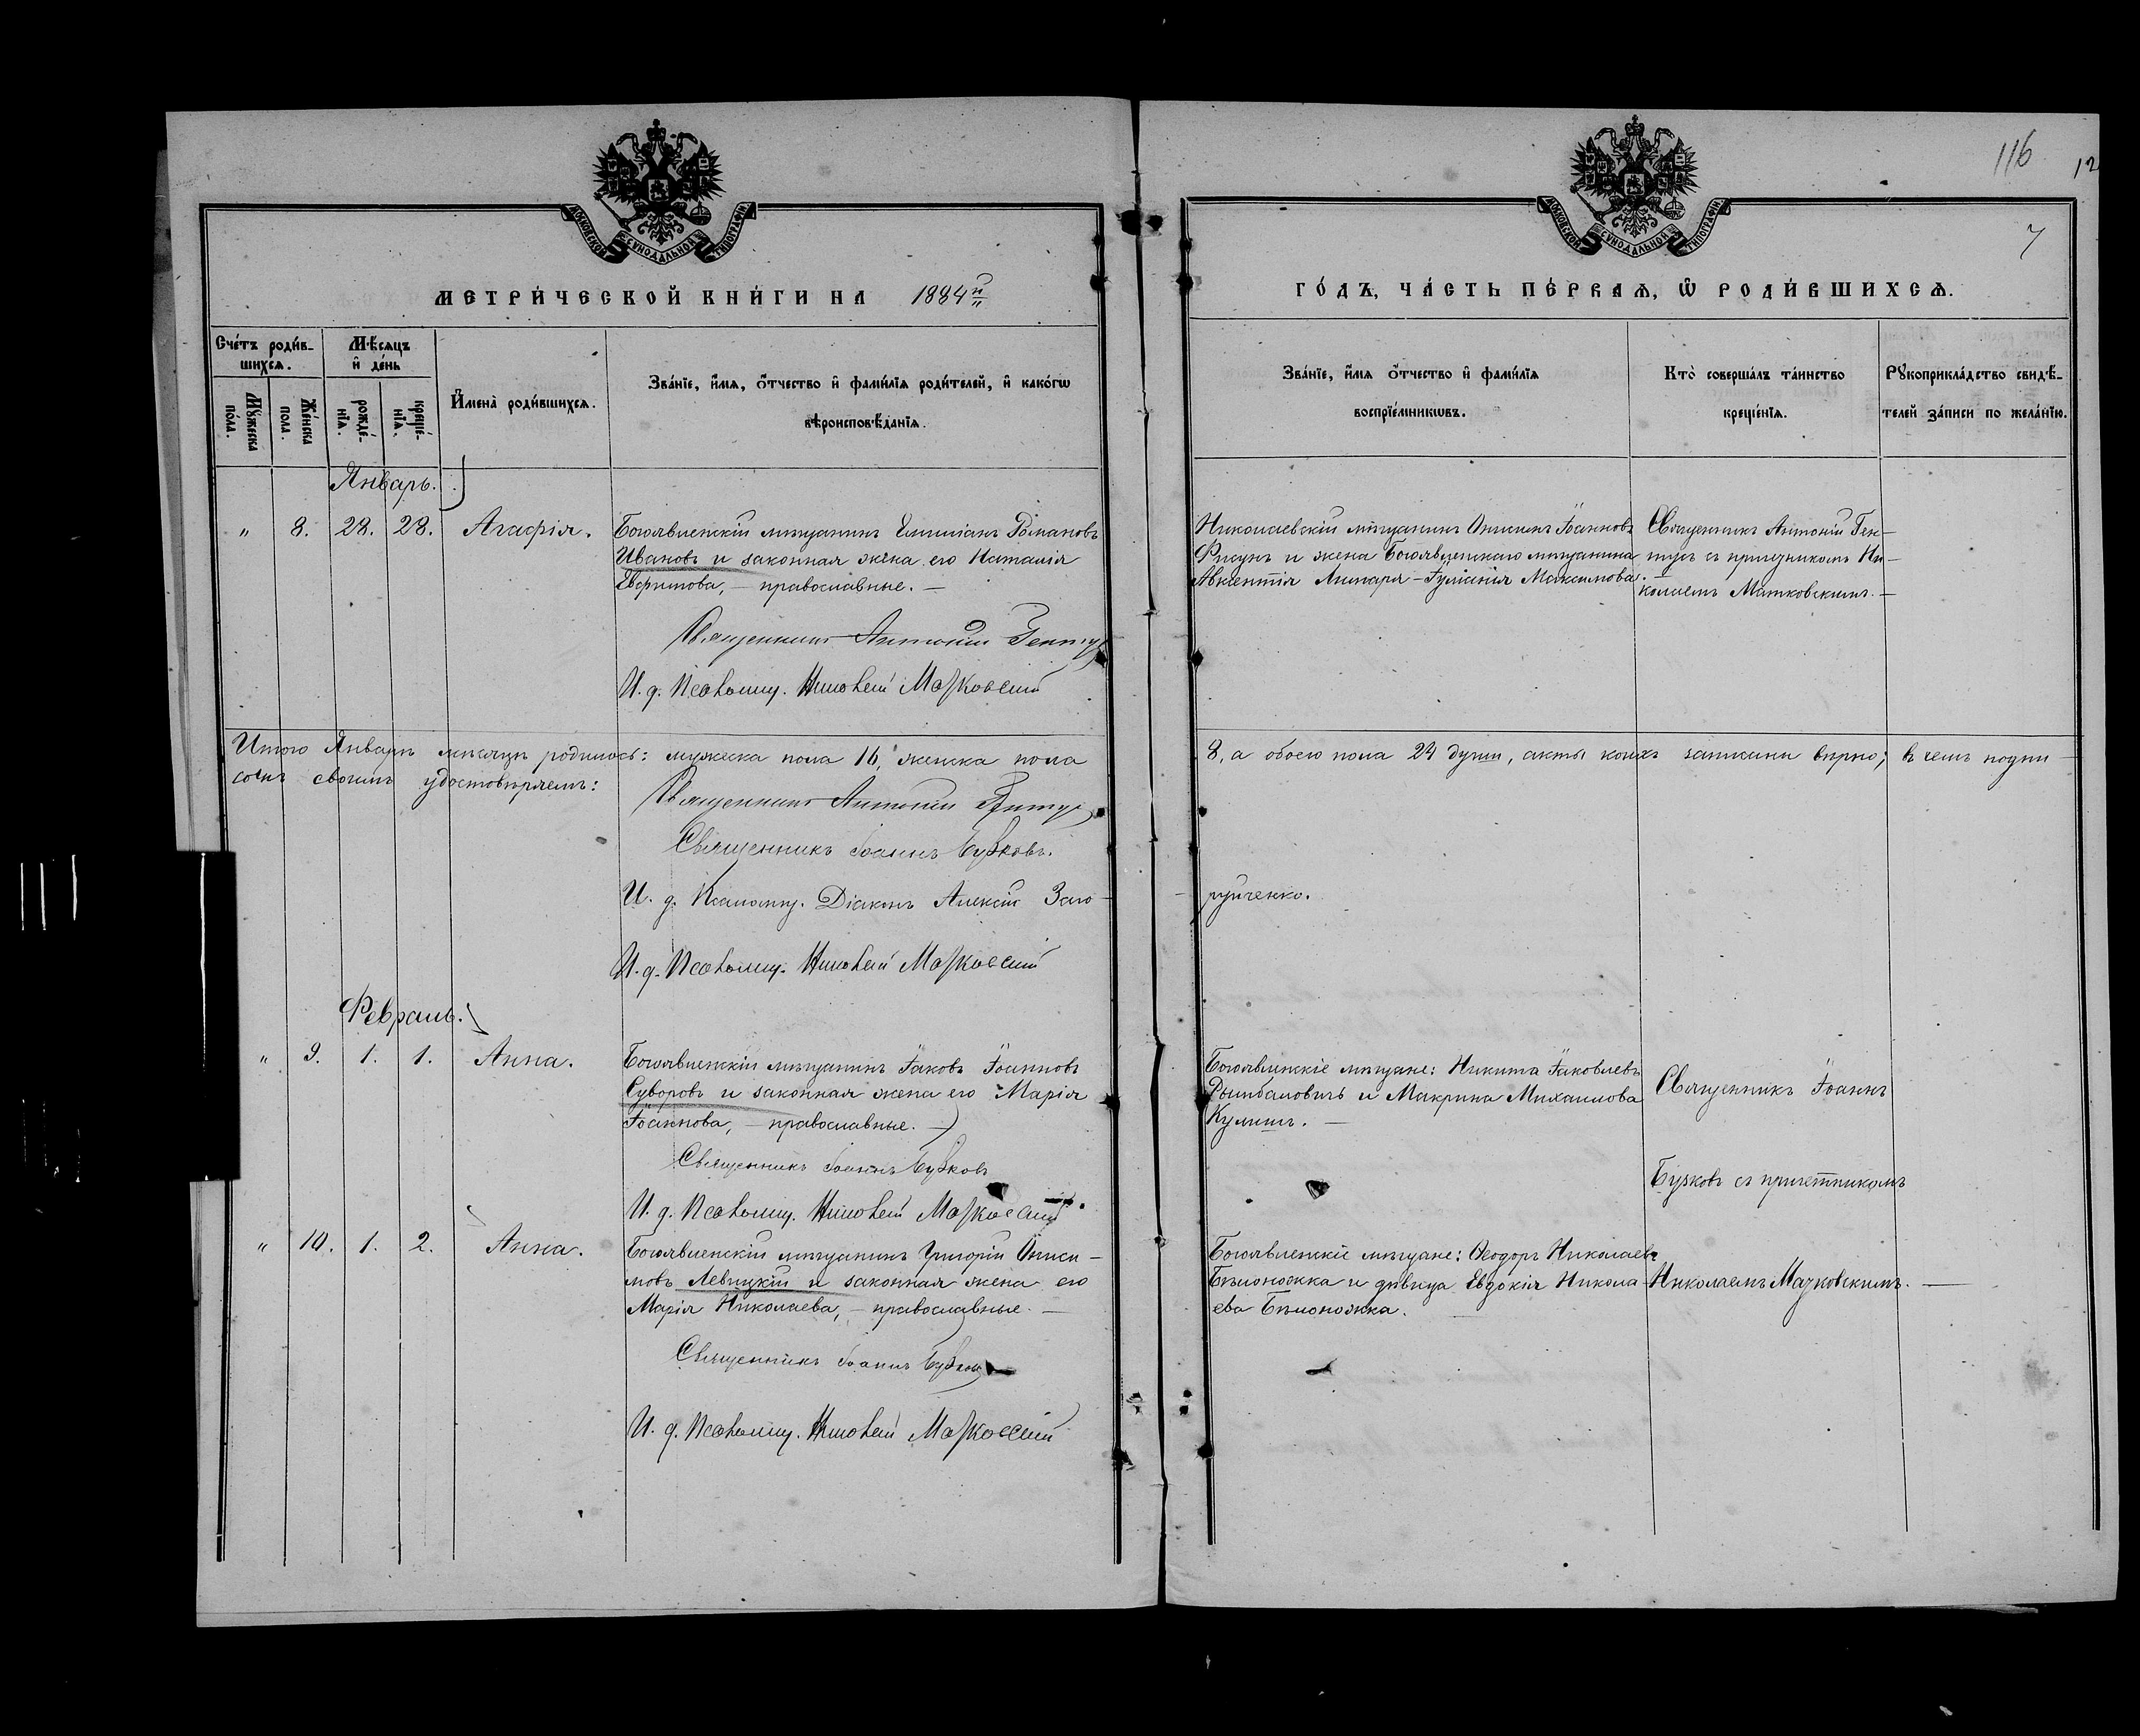 116
12
7
МОСКОВСКОЙ СѴНОДАЛЬНОЙ ТИПОГРАФІИ
МОСКОВСКОЙ СѴНОДАЛЬНОЙ ТИПОГРАФІИ
МЕТРИ́ЧЕСКОЙ КНИ́ГИ НА 1884й
ГО́ДЪ, ЧА́СТЬ ПЕ́РВАѦ, Ѡ РОДИ́ВШИХСѦ.
Сче́тъ роди́в-
шихсѧ.
Мѣ́сѧцъ
и҆ де́нь
Мꙋ́жеска
по́ла.
Же́нска
пола.
рожде́-
нїѧ.
креще́-
нїѧ.
И҆мена̀ роди́вшихсѧ.
Зва́нїе, и҆́мѧ, ѻ҆́тчество и҆ фами́лїѧ роди́телей, и҆ како́гѡ
вѣроисповѣ́данїѧ.
Зва́нїе, и҆́мѧ ѻ҆́тчество и҆ фами́лїѧ
воспрїе́мникѡвъ.
Кто̀ соверша́лъ та́инство
креще́нїѧ.
Рꙋкоприкла́дство свидѣ́-
телей за́писи по жела́нїю.
Январь.
" 8. 28. 28. Агафія.
Богоявленскій мѣщанинъ Емиліанъ Романовъ
Ивановъ и законная жена его Наталія
Евфимова, — православные. —
Священникъ Антоній Гентуг
И. д. Псаломщ. Николай Мачковскій
Николаевскій мѣщанинъ Онисимъ Іоанновъ
Фисунъ и жена Богоявленскаго мѣщанина
Авксентія Линкаря — Іуліанія Максимова.
Священникъ Антоній Ген-
тугъ съ причетникомъ Ни-
колаемъ Мачковскимъ. —
Итого Январь мѣсяцъ родилось: мужеска пола 16, женска пола
8, а обоего пола 24 души, акты коихъ записаны вѣрно; въ чемъ подпи-
сомъ своимъ удостовѣряемъ:
Священникъ Антоній Гентуг
Священникъ Іоаннъ Бузковъ.
И. д. Псаломщ. Діаконъ Алексій Заго-
руйченко.
И. д. Псаломщ. Николай Мачковскій
Февраль.
" 9. 1. 1. Анна.
Богоявленскій мѣщанинъ Іаковъ Іоанновъ
Суворовъ и законная жена его Марія
Іоаннова, — православные. —
Священникъ Іоаннъ Бузковъ
И. д. Псаломщ. Николай Мачковскій
Богоявленскіе мѣщане: Никита Іаковлевъ
Рымбаловичъ и Макрина Михаилова
Кулишъ. —
Священникъ Іоаннъ
Бузковъ съ причетникомъ
Николаемъ Мачковскимъ. —
" 10. 1. 2. Анна.
Богоявленскій мѣщанинъ Григорій Ониси-
мовъ Левицкій и законная жена его
Марія Николаева, — православные. —
Священникъ Іоаннъ Бузковъ
И. д. Псаломщ. Николай Мачковскій
Богоявленскіе мѣщане: Ѳеодоръ Николаевъ
Бѣлоножка и дѣвица Евдокія Никола-
ева Бѣлоножка.